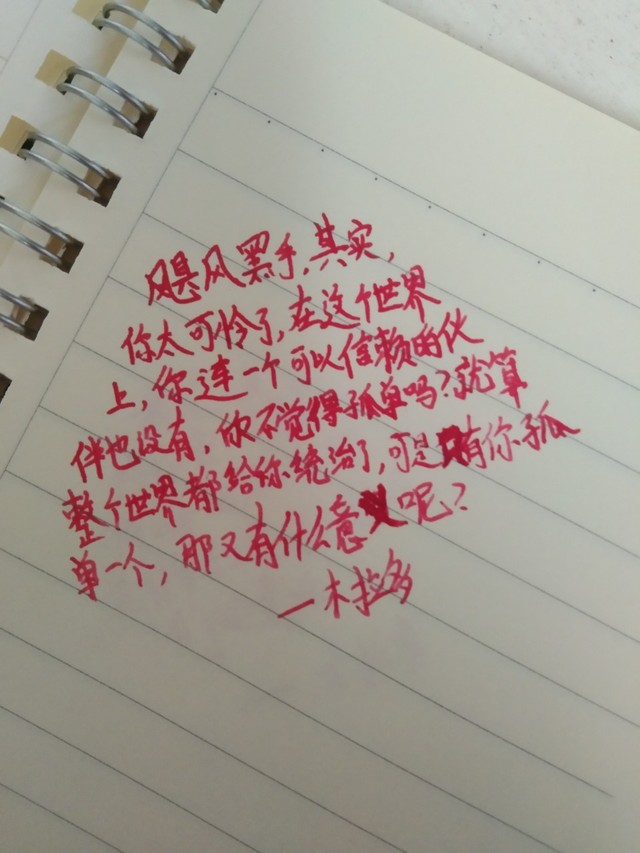 飓风黑手,其实,
你太可怜了,在这个世界
上,你连一个可以信赖的伙
伴也没有,你不觉得孤单吗?就算
整个世界都给你统治了,可是有你孤
单一个,那又有什么意义呢?
—木拉多